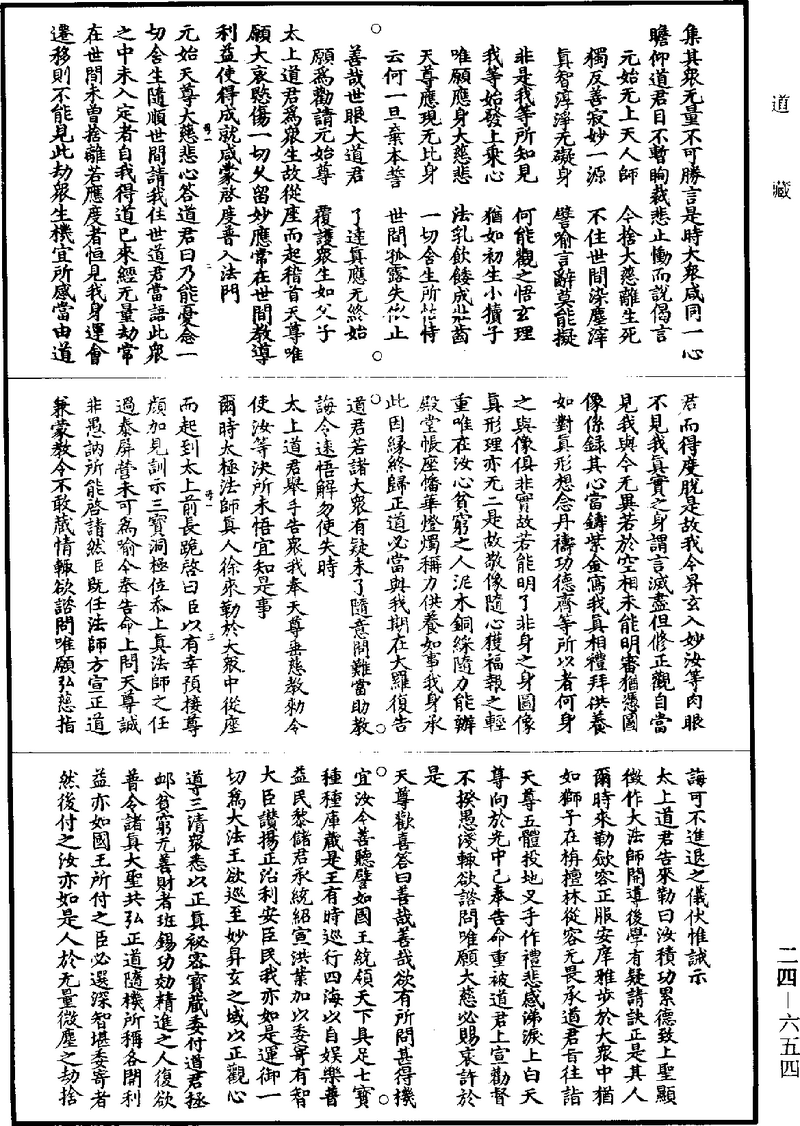 道藏
集其眾无量不可勝言是時大眾咸同一心
瞻仰道君目不暫眴裁悲止慟而說偈言
元始无上天人師　令捨大慈離生死
獨反善寂妙一源　不住世間染塵滓
真智淳淨无礙身　譬喻言辭莫能擬
非是我等所知見　何能觀之悟玄理
我等始發上乘心　猶如初生小犢子
唯願應身大慈悲　法乳飲餧成壯齒
天尊應現无比身　一切含生所怙恃
云何一旦棄本誓　世間孤露失依止
善哉世眼大道君　了達真應无終始
願為勸請元始尊　覆護眾生如父子
太上道君為眾生故從座而起稽首天尊唯
願大哀愍傷一切久留妙應常在世間教導
利益使得成就咸蒙啓度普入法門
元始天尊大慈悲心答道君曰乃能憂念一
切含生隨順世間請我住世道君當語此眾
之中未入定者自我得道已來經无量劫常
在世間未曾捨離若應度者恒見我身運會
遷移則不能見此劫眾生機宜所感當由道
君而得度脫是故我今昇玄入妙汝等肉眼
不見我真實之身謂言滅盡但修正觀自當
見我與今无異若於空相未能明審猶憑圖
像係錄其心當鑄紫金寫我真相禮拜供養
如對真形想念丹禱功德齊等所以者何身
之與像俱非實故若能明了非身之身圖像
真形理亦无二是故敬像隨心獲福報之輕
重唯在汝心貧窮之人泥木銅綵隨力能辦
殿堂帳座幡華燈燭稱力供養如事我身承
此因緣終歸正道必當與我期在大羅復告
道君若諸大眾有疑未了隨意問難當助教
誨令速悟解勿使失時
太上道君舉手告眾我奉天尊垂慈教勑令
使汝等決所未悟宜知是事
爾時太極法師真人徐來勒於大眾中從座
而起到太上前長跪啓曰臣以有幸預接尊
顏加見訓示三寶洞極位忝上真法師之任
過泰屏營未可為喻今奉告命上問天尊誠
非愚訥所能啓請然臣既任法師方宣正道
兼蒙教令不敢藏情輒欲諮問唯願弘慈指
誨可不進退之儀伏惟誡示
太上道君告來勒曰汝積功累德致上聖顯
徵作大法師開導後學有疑請訣正是其人
爾時來勒斂容正服安庠雅步於大眾中猶
如獅子在栴檀林從容无畏承道君旨往詣
天尊五體投地叉手作禮悲感涕淚上白天
尊向於光中已奉告命重被道君上宣勸督
不揆愚淺輒欲諮問唯願大慈必賜哀許於
是
天尊歡喜答曰善哉善哉欲有所問甚得機
宜汝今善聽譬如國王統領天下具足七寶
種種庫藏是王有時巡行四海以自娛樂普
益民黎儲君承統紹宣洪業加以委寄有智
大臣讚揚正治利安臣民我亦如是運御一
切為大法王欲巡至妙昇玄之域以正觀心
導三清眾悉以正真祕密寶藏委付道君拯
卹貧窮无善財者班錫功効精進之人復欲
普令諸真大聖共弘正道隨機所稱各開利
益亦如國王所付之臣必選深智堪委寄者
然後付之汝亦如是人於无量微塵之劫捨
二四—六五四